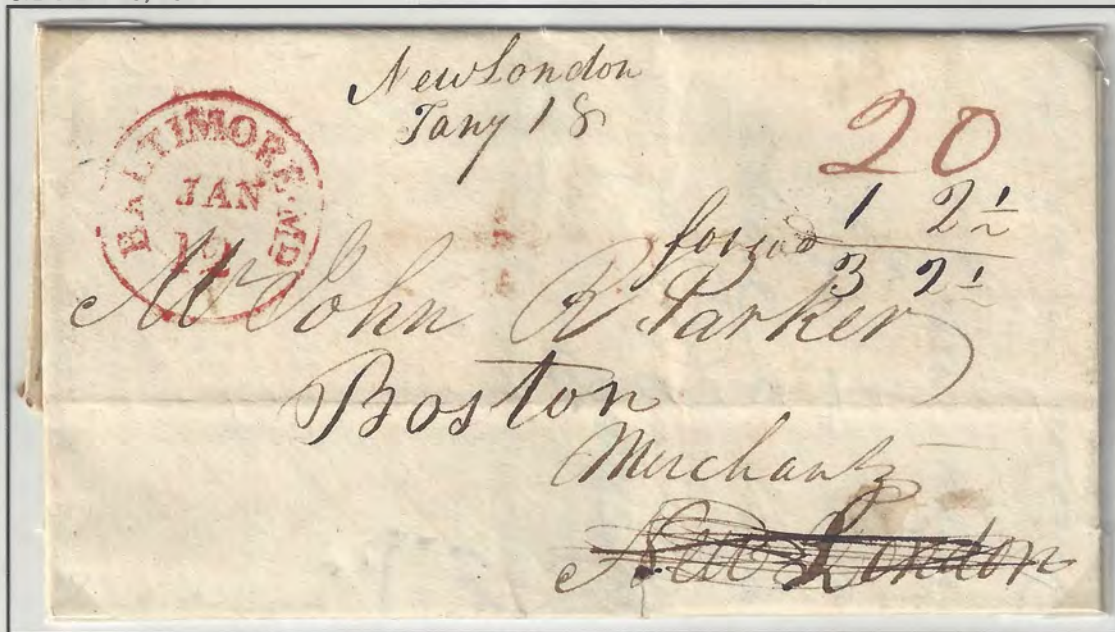 New London
Jany 18
BALTIMORE. MD
JAN
12
20
1 2 1/2
forwd
3 2 1/2
Mr John R Parker
Boston
Merchant
New London